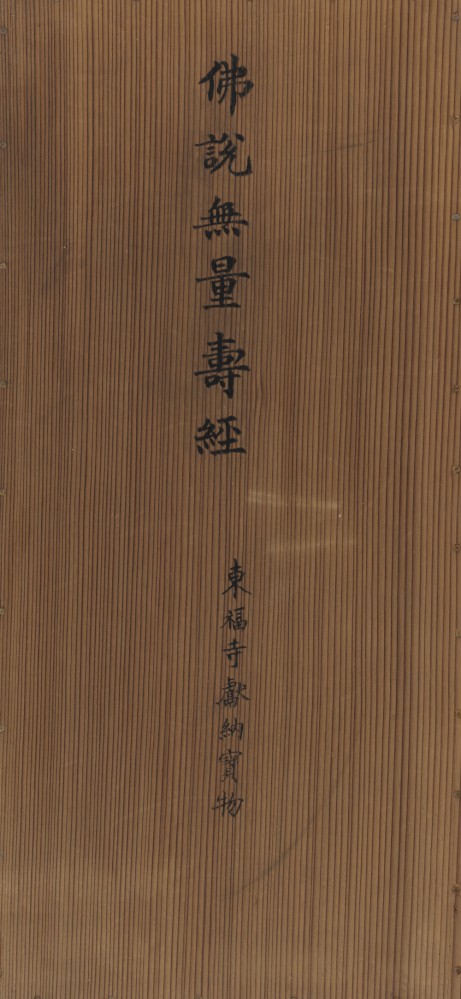 佛說無量壽經
東福寺獻納寶物